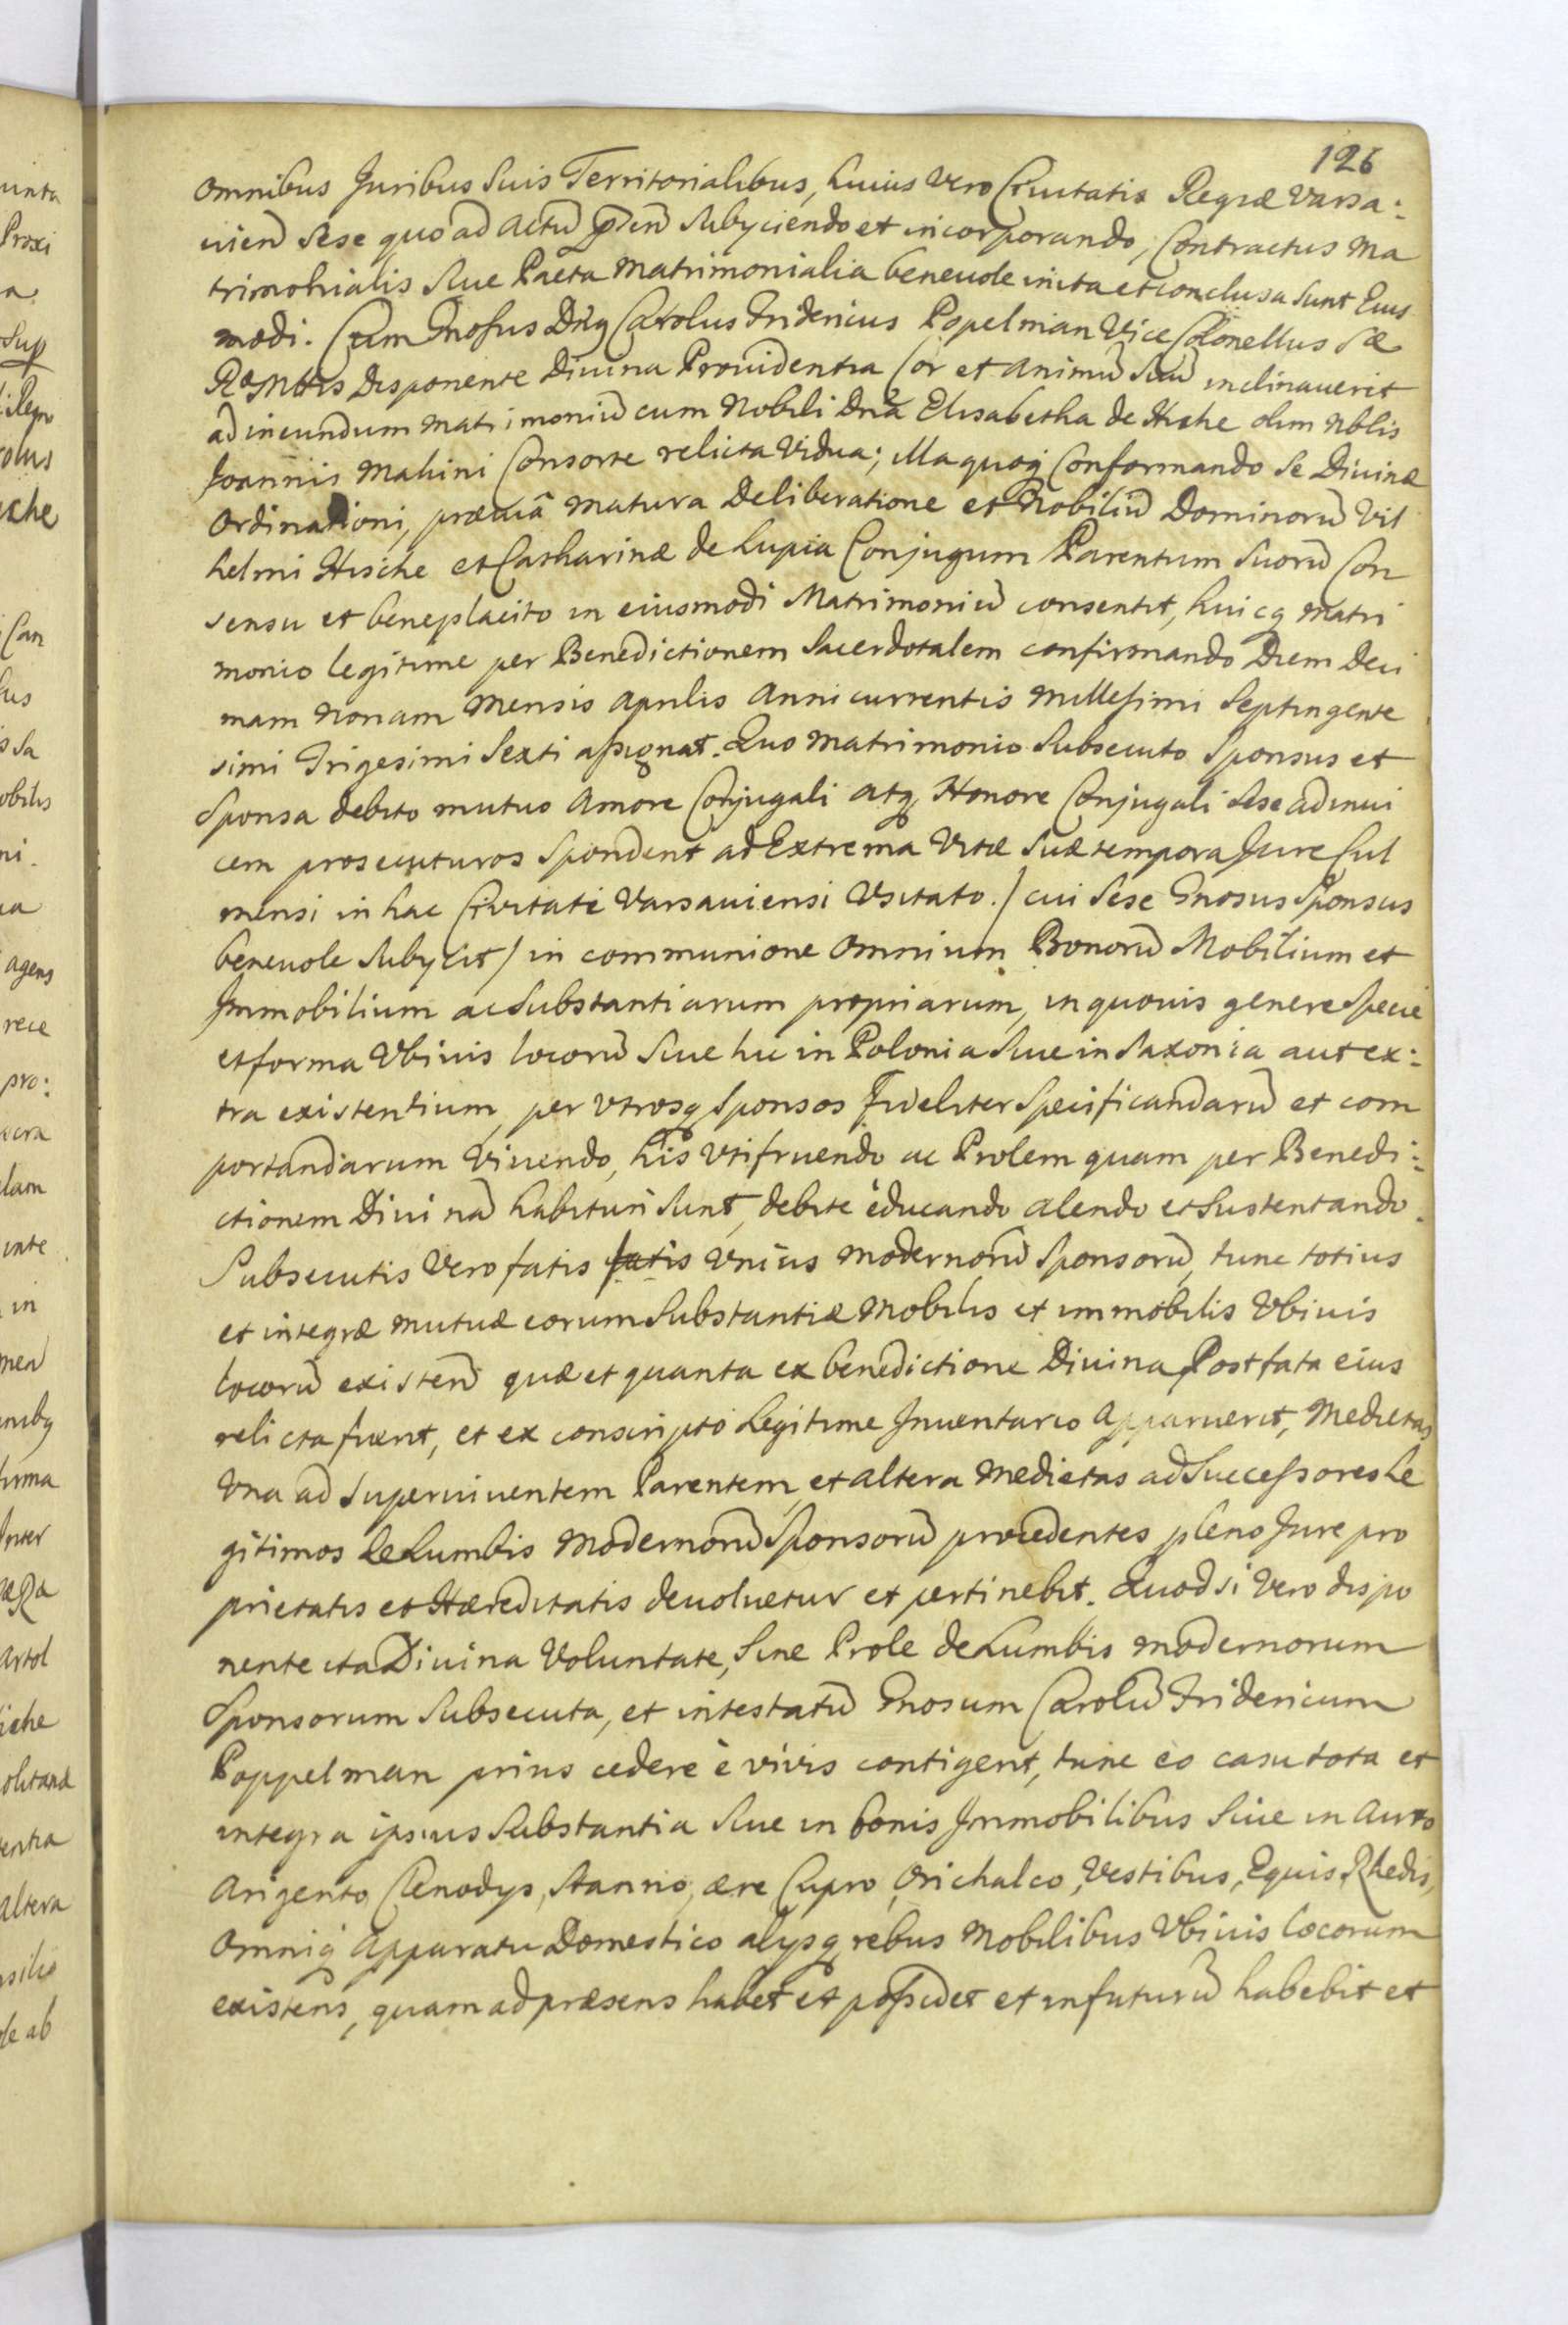 126
omnibus Juribus Suis Territorialibus, huius vero Civitatis Regiæ Varsa:
vien̄ sese quo ad Actū p̄sen̄ Subyciendo et incorporando, Contractus Ma
trimonialis Siue Pacta Matrimonialia beneuole inita et conclusa sunt Eius
modi. Cum Gnosus Dn̄g Carolus Fridericus Popelman Vice Colonellus Sæ
Ræ Mttis disponente Diuina Prouidentia Cor et animū suū inclinauerit
ad ineundum Matrimoniū cum Nobili Dnā Elisabetha de Hishe olim Nblis
Joannis Mahini Consorte relicta Vidua; illa quoq̢ Conformando se Diuinæ
Ordinationi, præuiâ matura Deliberatione et Nobiliū Dominorū Vil
helmi Hische et Catharinæ de Lupia Conjugum Parentum Suorū Con
sensu et beneplacito in eiusmodi Matrimoniū consentit, huicq̢ Matri
monio legitime per Benedictionem Sacerdotalem confirmando Diem Deci
mam Nonam Mensis Aprilis Anni currentis Millesimi Septingente
simi Trigesimi Sexti assignat. Quo Matrimonio Subsecuto Sponsus et
Sponsa debito mutuo Amore Conjugali atq̢ Honore Conjugali sese adinui
cem prosecuturos Spondent ad Extrema Vitæ Suæ tempora Jure Cul
mensi in hac Civitate Varsauiensi Vsitato / cui sese Gnosus Sponsus
beneuole Subycit / in communione omnium Bonorū Mobilium et
Immobilium ac Substantiarum propriarum, in quouis genere Specie
et forma Vbiuis locorū Siue hic in Polonia Siue in Saxonia aut ex:
tra existentium, per Vtrosq̢ Sponsos Fideliter Specificandarū et com
portandarum Viuendo, his Vtifruendo ac Prolem quam per Benedi:
ctionem Diuinā habituri Sunt, debite educando alendo et Sustentando.
Subsecutis Vero fatis fatis Vnius Modernorū Sponsorū, tunc totius
et integræ mutuæ eorum Substantiæ Mobilis et immobilis Vbiuis
locorū existen̄ quæ et quanta ex benedictione Diuina Post fata eius
relicta fuerit, et ex conscripto Legitime Inuentario Apparuerit, Medietas
Vna ad Superuiuentem Parentem, et altera Medietas ad Successores Le
gitimos de Lumbis Modernorū Sponsorū procedentes pleno Jure pro
prietatis et Hæreditatis deuoluetur et pertinebit. Quodsi Vero dispo
nente ita Diuina Voluntate, Sine Prole de Lumbis modernorum
Sponsorum Subsecuta, et intestatū Gnosum Carolū Fridericum
Poppelman prius cedere è vivis contigerit, tunc eo casu tota et
integra ipsius Substantia Siue in bonis Immobilibus Siue in Auro
Argento Clenodys, Stanno, ære Cupro, Orichalco, Vestibus, Equis, Rhedis,
Omniq̢ Apparatu Domestico alysq̢ rebus Mobilibus Vbiuis locorum
existens, quam ad præsens habet et possidet et in futurū habebit et